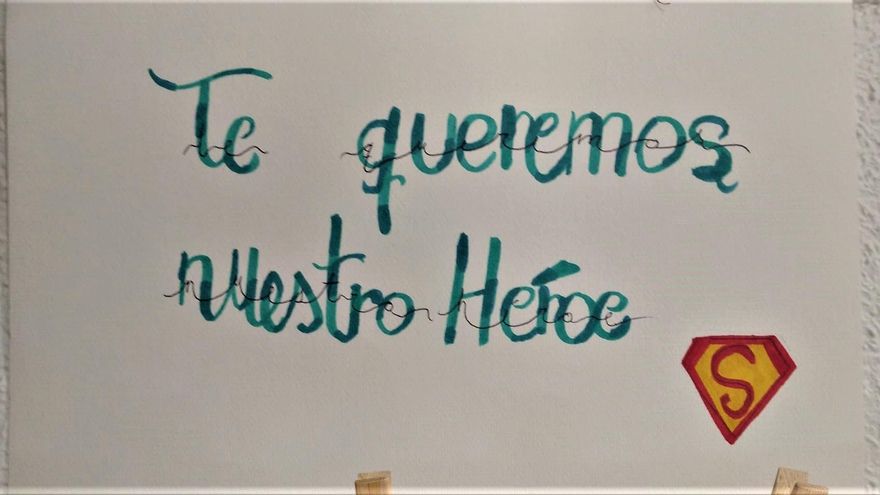 Te queremos
nuestro Héroe
S